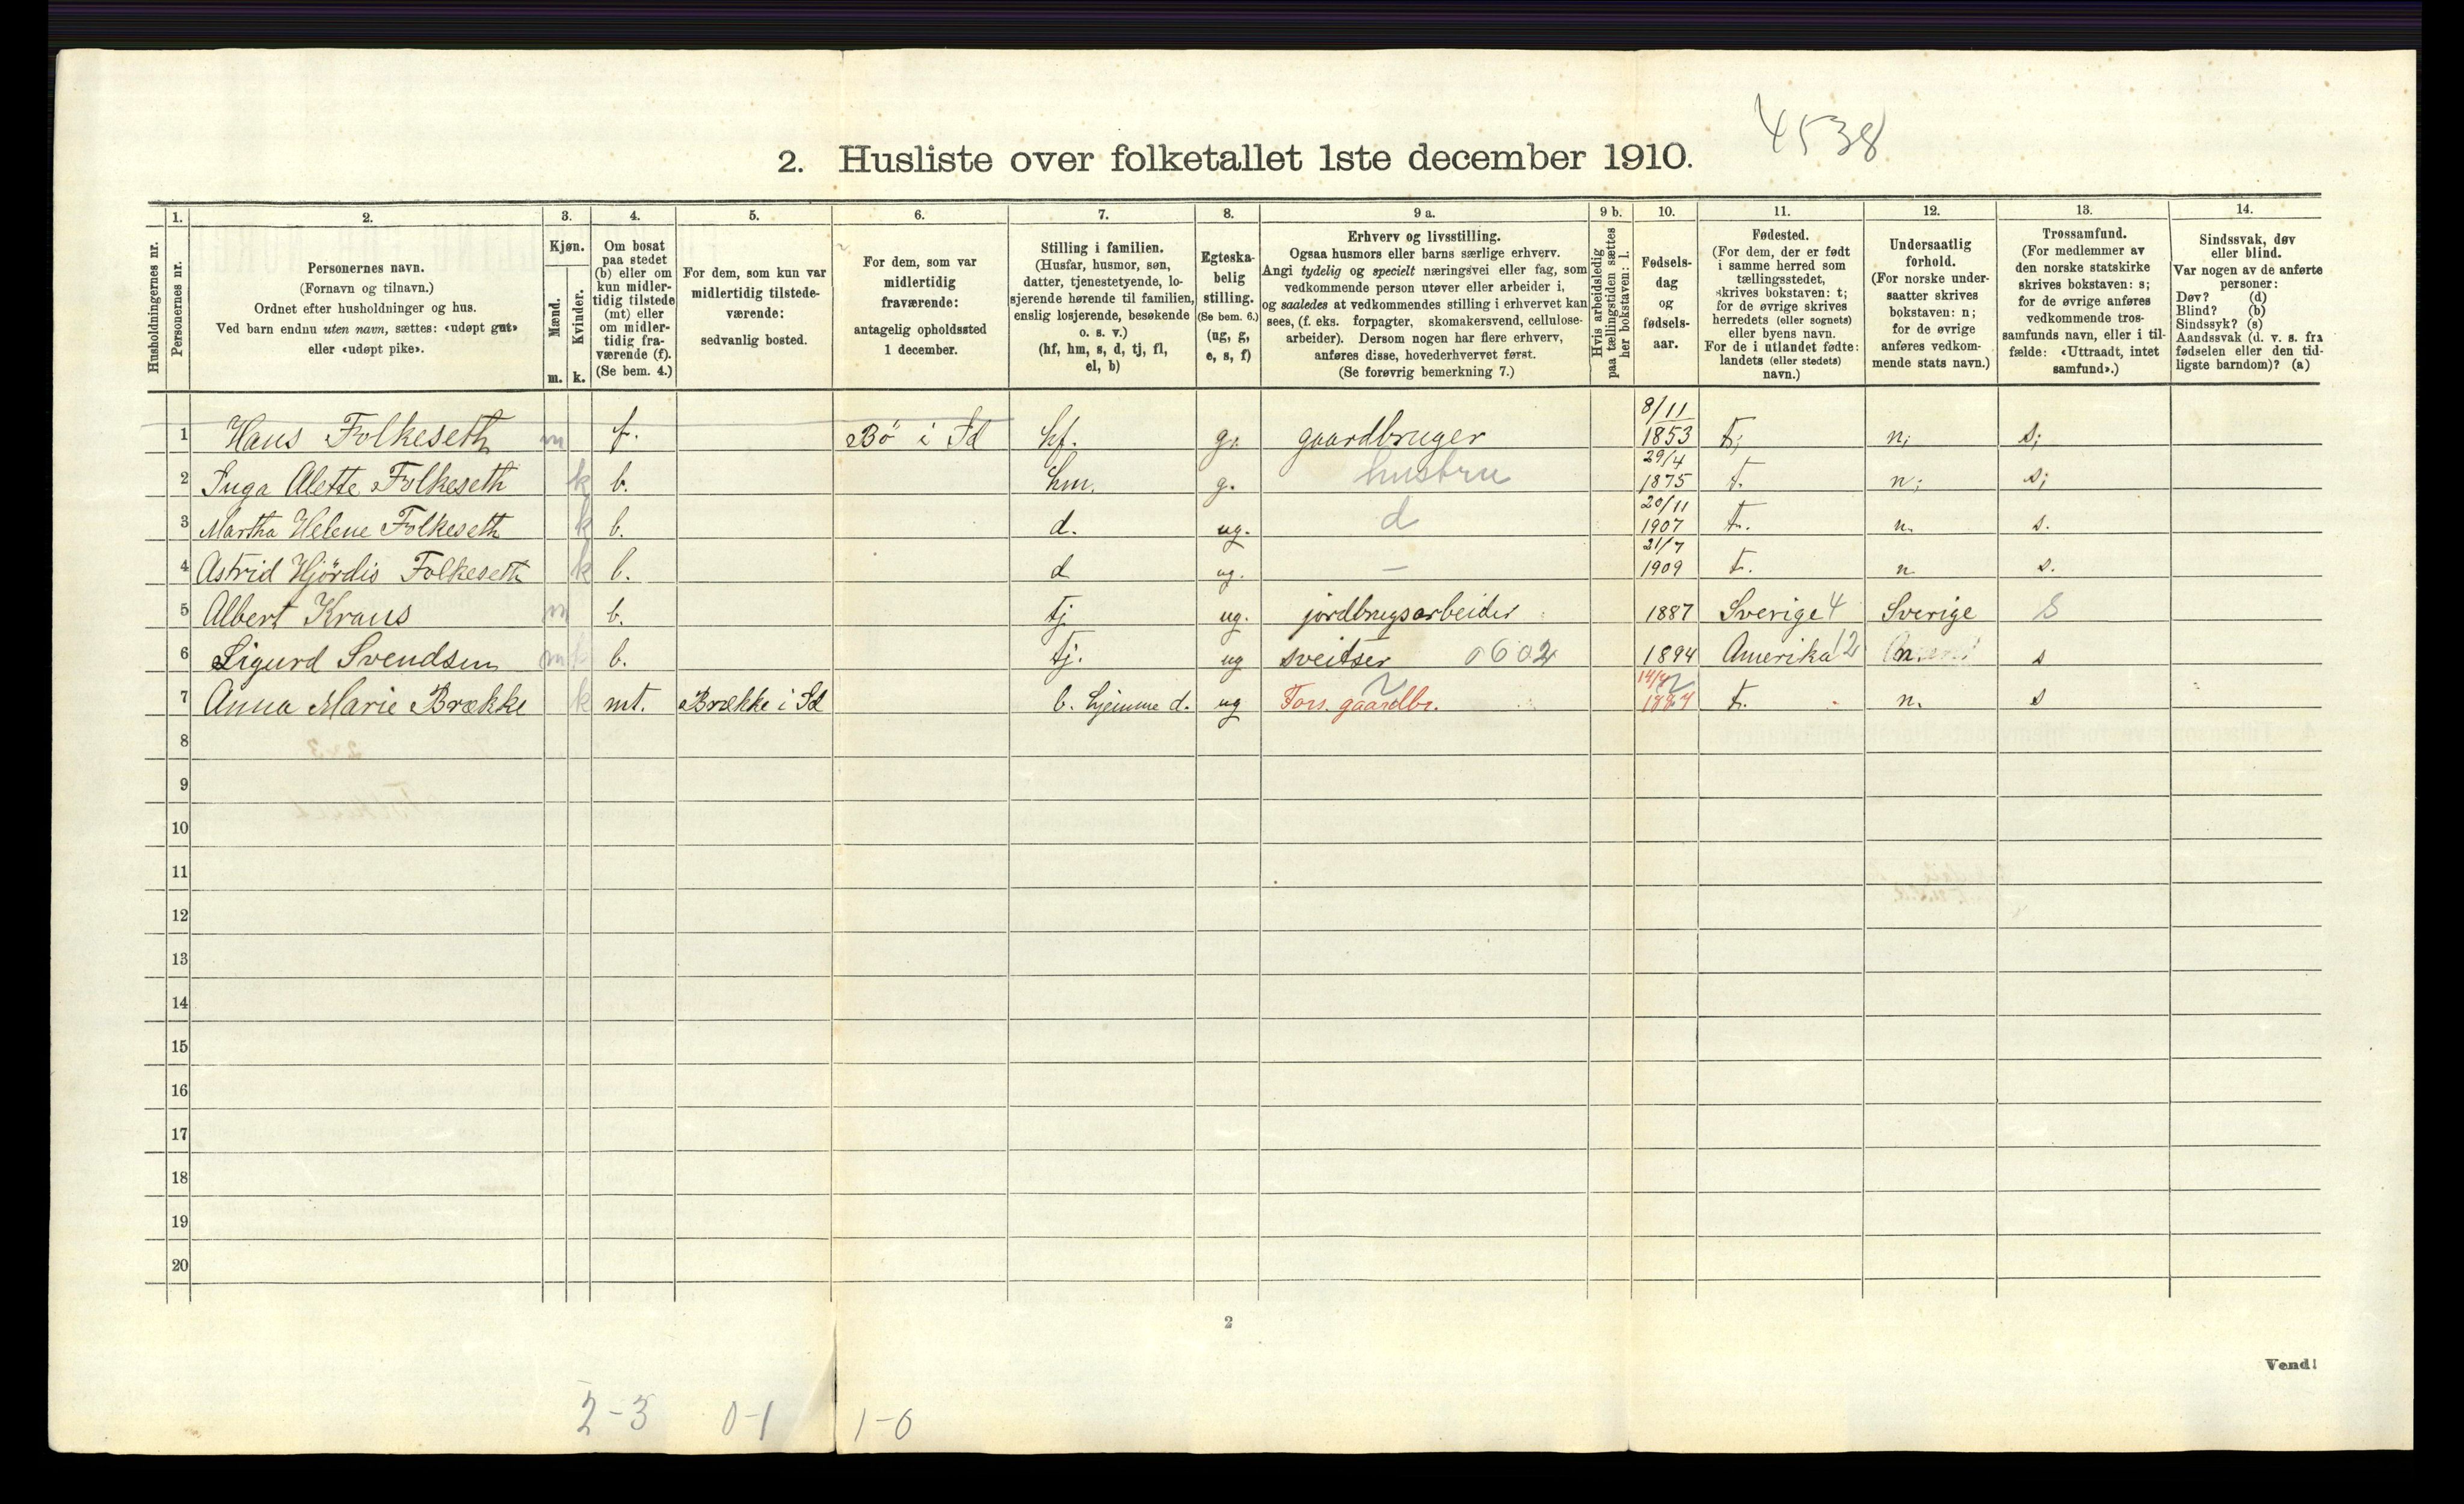 4538
2. Husliste over folketallet 1ste december 1910.
Husholdningernes nr.
1. Personernes nr.
2. Personernes navn. (Fornavn og tilnavn.) Ordnet efter husholdninger og hus. Ved barn endnu uten navn, sættes: «udøpt gut» eller «udøpt pike».
3. Kjøn. Mænd. m. Kvinder. k.
4. Om bosat paa stedet (b) eller om kun midler-tidig tilstede (mt) eller om midler-tidig fra-værende (f). (Se bem. 4.)
5. For dem, som kun var midlertidig tilstede-værende: sedvanlig bosted.
6. For dem, som var midlertidig fraværende: antagelig opholdssted 1 december.
7. Stilling i familien. (Husfar, husmor, søn, datter, tjenestetyende, lo-sjerende hørende til familien, enslig losjerende, besøkende o. s. v.) (hf, hm, s, d, tj, fl, el, b)
8. Egteska-belig stilling. (Se bem. 6.) (ug, g, e, s, f)
9 a. Erhverv og livsstilling. Ogsaa husmors eller barns særlige erhverv. Angi tydelig og specielt næringsvei eller fag, som vedkommende person utøver eller arbeider i, og saaledes at vedkommendes stilling i erhvervet kan sees, (f. eks. forpagter, skomakersvend, cellulose-arbeider). Dersom nogen har flere erhverv, anføres disse, hovederhvervet først. (Se forøvrig bemerkning 7.)
9 b. Hvis arbeidsledig paa tællingstiden sættes her bokstaven: l.
10. Fødsels-dag og fødsels-aar.
11. Fødested. (For dem, der er født i samme herred som tællingsstedet, skrives bokstaven: t; for de øvrige skrives herredets (eller sognets) eller byens navn. For de i utlandet fødte: landets (eller stedets) navn.)
12. Undersaatlig forhold. (For norske under-saatter skrives bokstaven: n; for de øvrige anføres vedkom-mende stats navn.)
13. Trossamfund. (For medlemmer av den norske statskirke skrives bokstaven: s; for de øvrige anføres vedkommende tros-samfunds navn, eller i til-fælde: «Uttraadt, intet samfund».)
14. Sindssvak, døv eller blind. Var nogen av de anførte personer: Døv? (d) Blind? (b) Sindssyk? (s) Aandssvak (d. v. s. fra fødselen eller den tid-ligste barndom)? (a)
1 Hans Folkeseth m f. Bö i Id hf. g. gaardbruger 8/11 1853 t; n; s;
2 Inga Alette Folkeseth k b. hm. g. husbru 29/4 1875 t. n; s;
3 Martha Helene Folkeseth k b. d. ug. d 20/11 1907 t. n. s.
4 Astrid Hjördis Folkeseth k b. d ug. — 21/7 1909 t. n s.
5 Albert Kraus m b. tj ug. jordbrugsarbeider 1887 Sverige 4 Sverige S
6 Sigurd Svendsen m b. tj. ug sveitser 0602 1894 Amerika 12 n. s
7 Anna Marie Brække k mt. Brække i Id b. hjemme d. ug Fors. gaardbr. t. n. s
8
9
10
11
12
13
14
15
16
17
18
19
20
2
Vend!
2-3 0-1 1-0